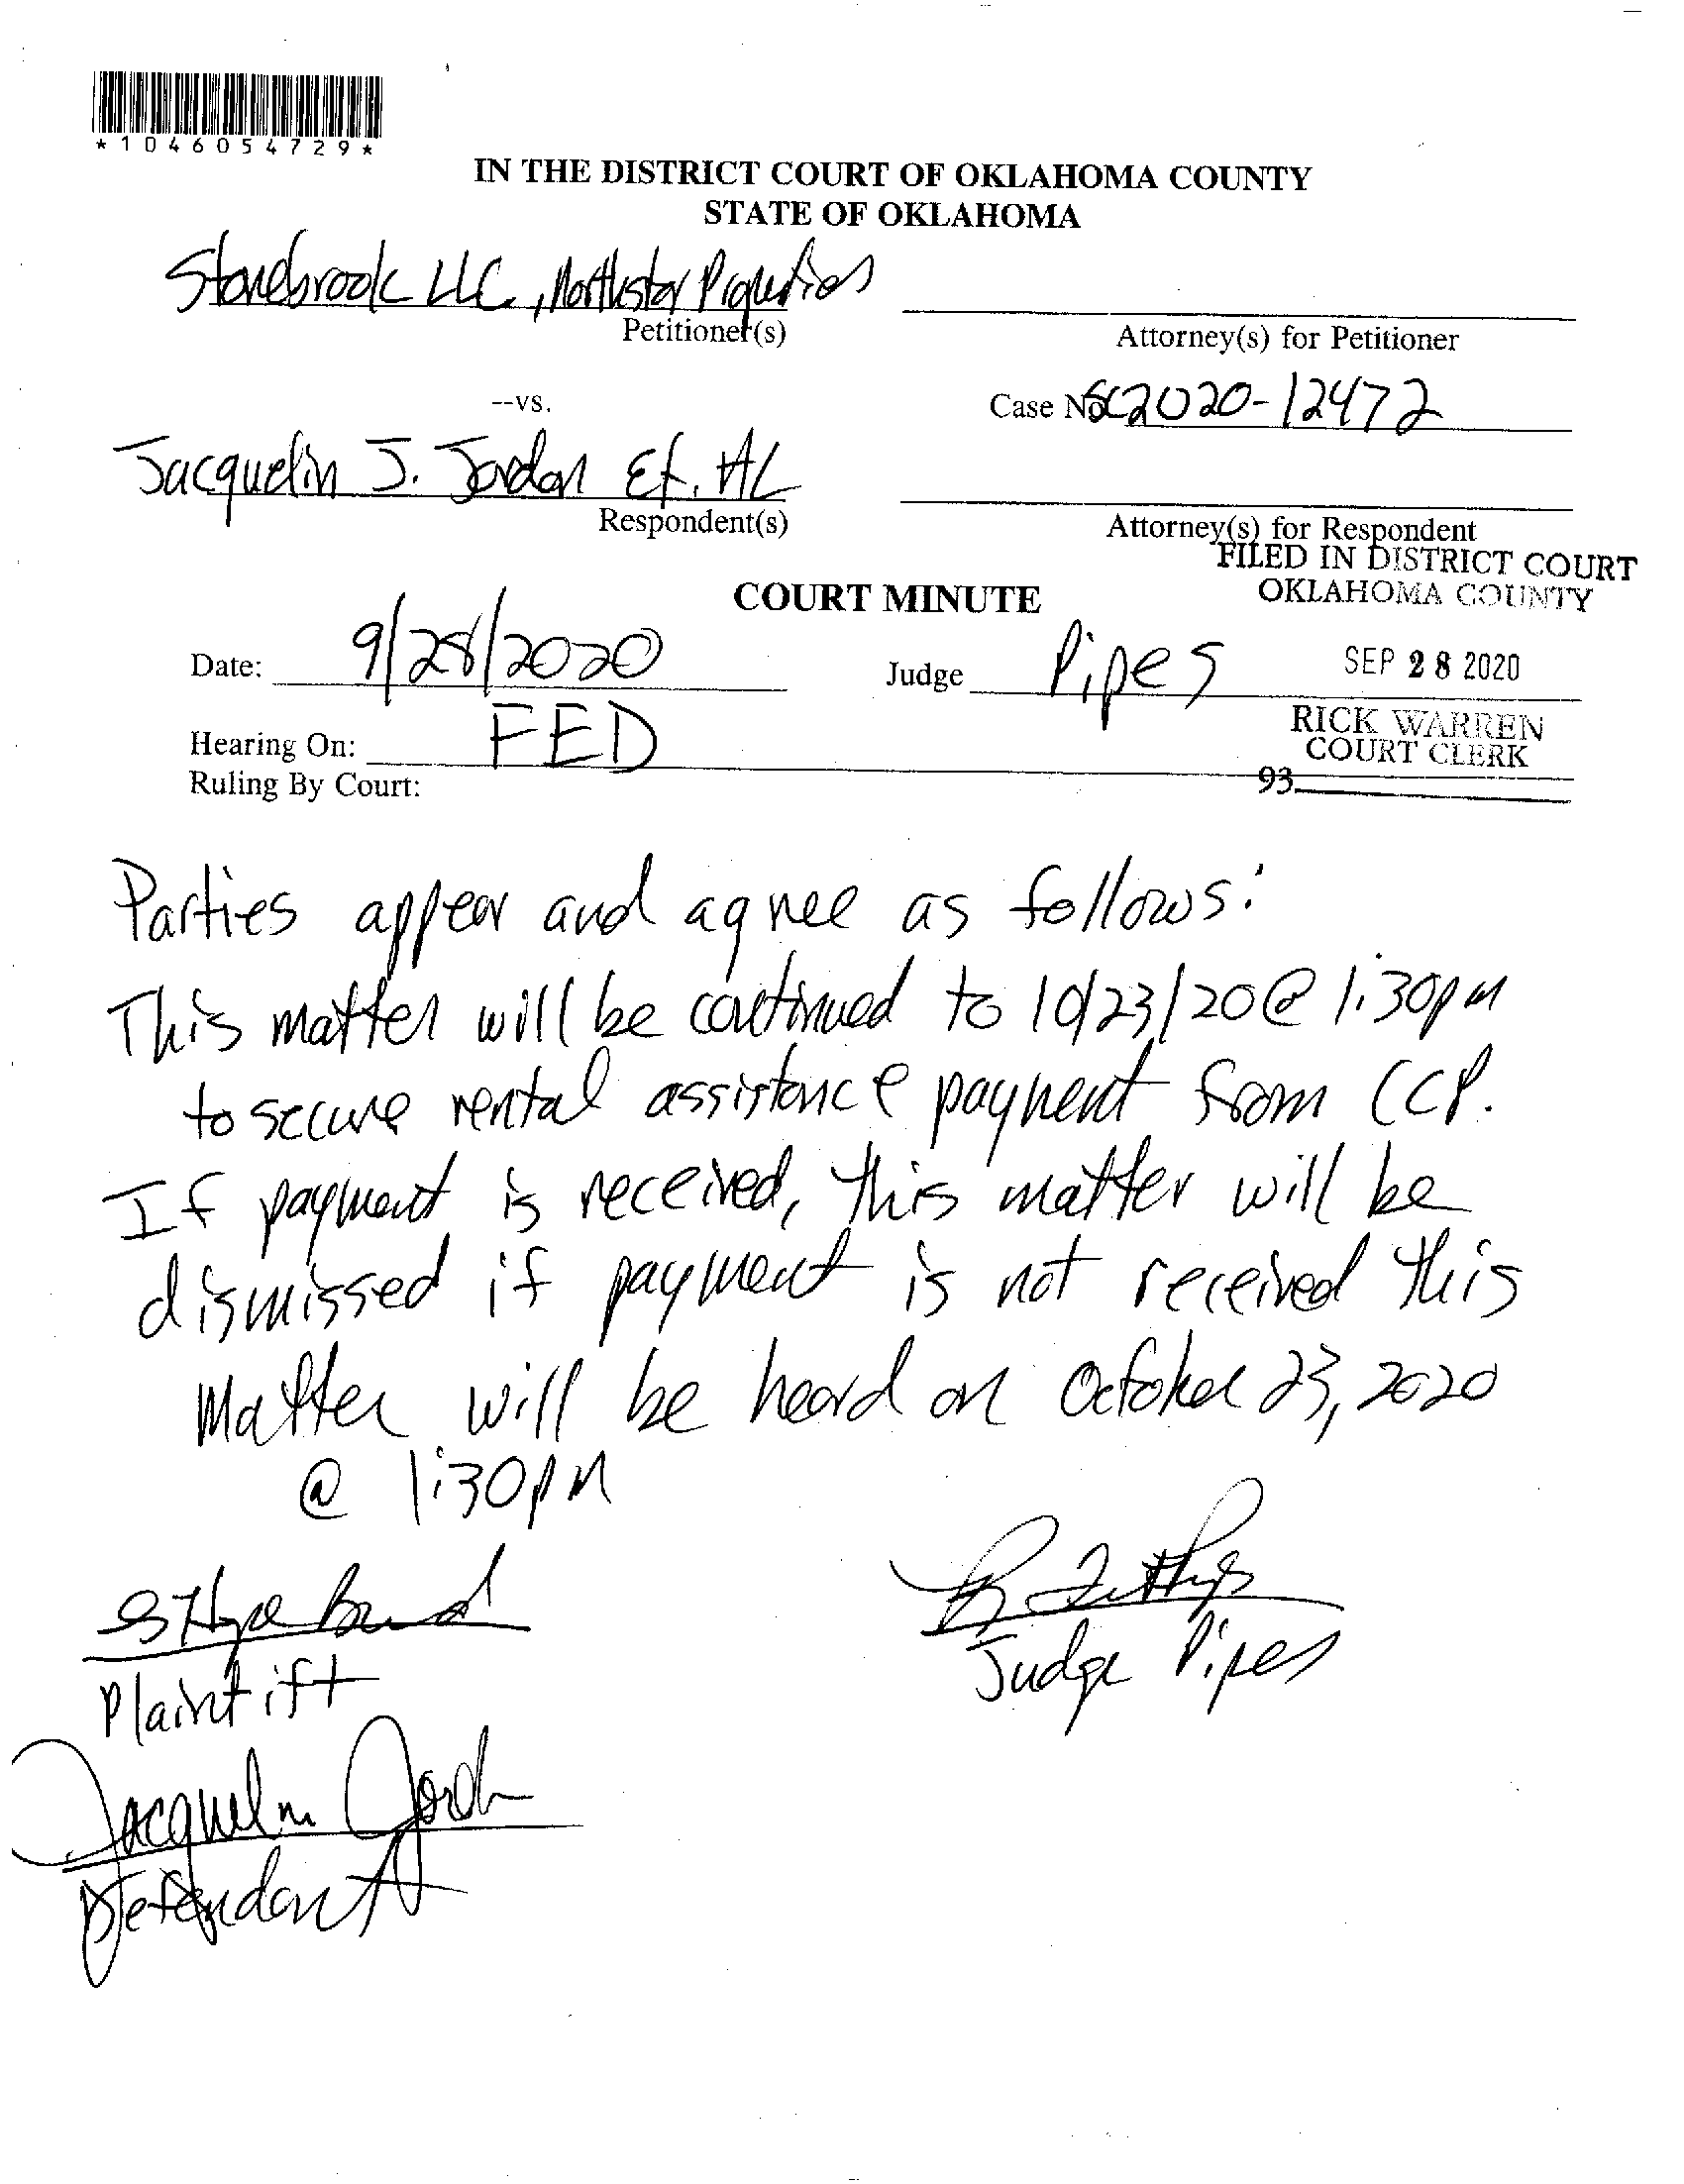 *1046054729*
IN THE DISTRICT COURT OF OKLAHOMA COUNTY
STATE OF OKLAHOMA
Stonebrook LLC, Northstar Properties
Petitioner(s)
Attorney(s) for Petitioner
--vs.
Case No. SC2020-12472
Jacquelin J. Jordan Et. AL
Respondent(s)
Attorney(s) for Respondent
FILED IN DISTRICT COURT
OKLAHOMA COUNTY
COURT MINUTE
Date: 9/28/2020 Judge Pipes
SEP 28 2020
RICK WARREN
COURT CLERK
93
Hearing On: FED
Ruling By Court:
Parties appear and agree as follows:
This matter will be continued to 10/23/20 @ 1:30pm
to secure rental assistance payment from CCP.
If payment is received, this matter will be
dismissed if payment is not received this
Matter will be heard on October 23, 2020
@ 1:30pm
Plaintiff
Judge Pipes
Jacquelin Jordan
Defendant